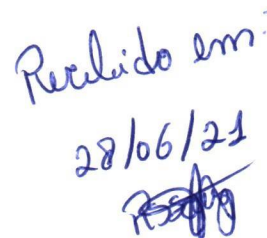 Recebido em:
28/06/21